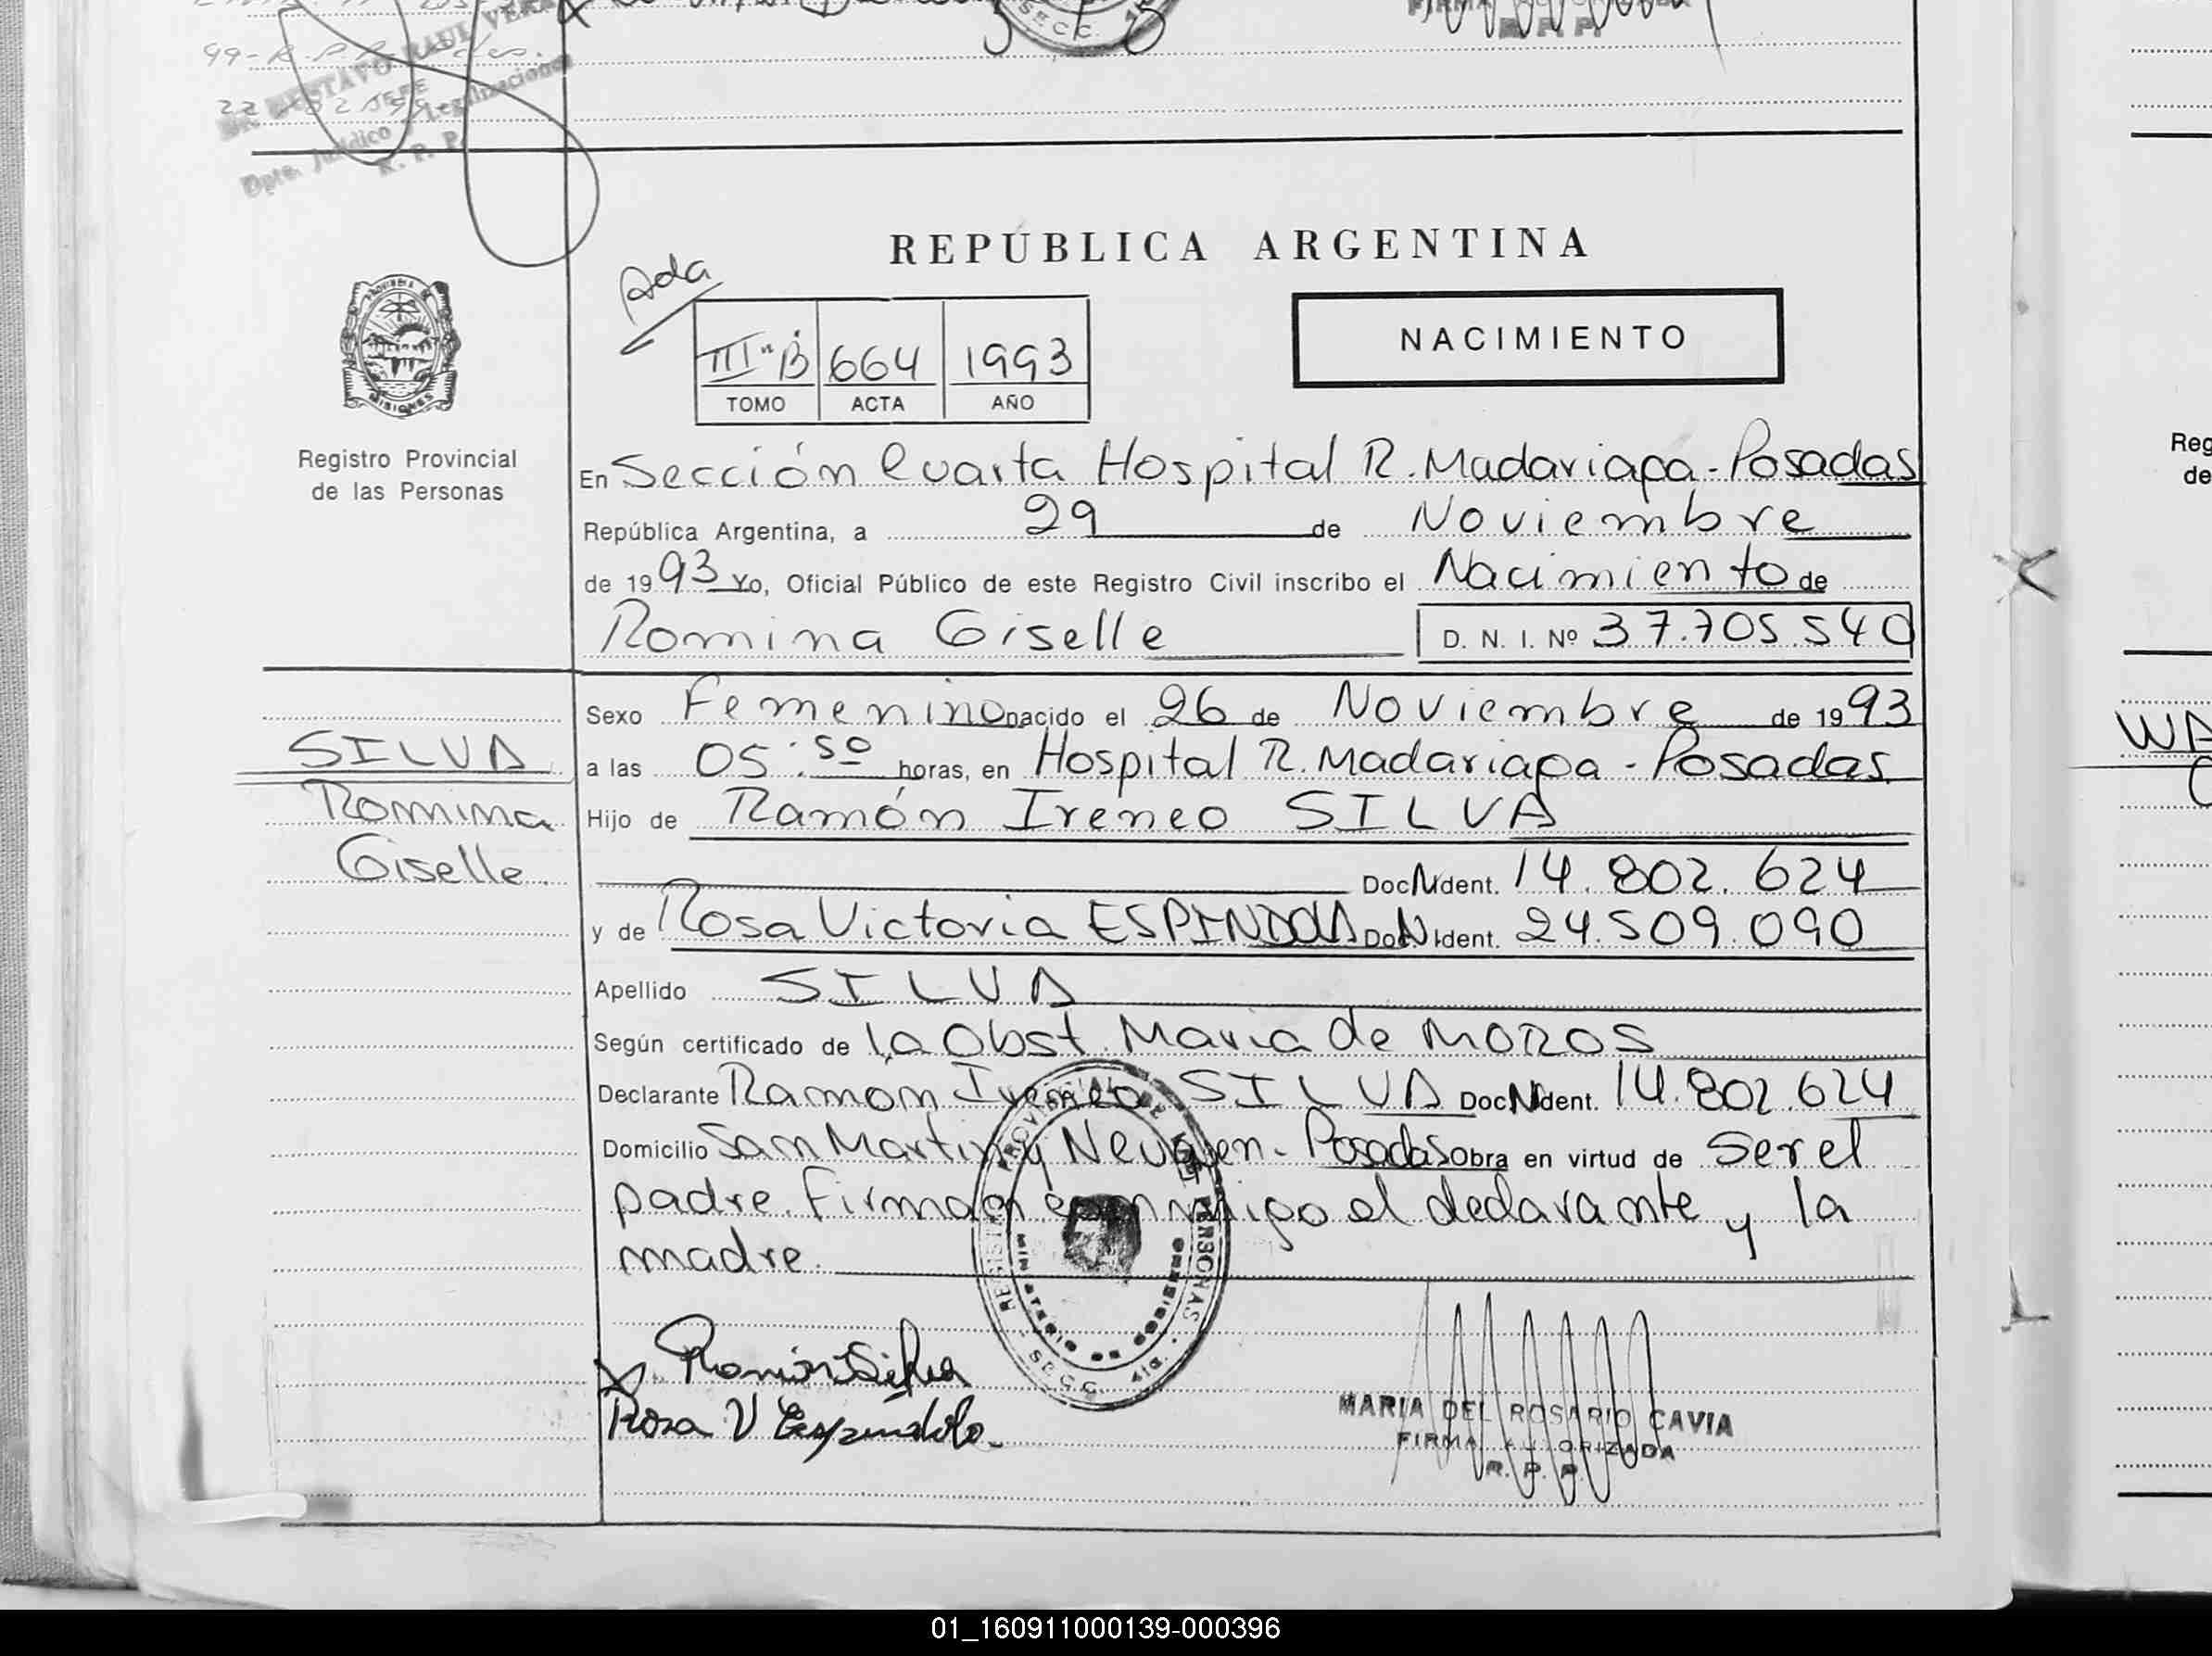 99-R.P.P.
GUSTAVO RAUL VERA
JEFE
Dpto. Jurídico y Legalizaciones
R. P. P.
S.E.C.C.
R. P. P.
REPÚBLICA ARGENTINA
Ada
NACIMIENTO
III "B" 664 1993
TOMO ACTA AÑO
PROVINCIA DE
MISIONES
Registro Provincial
de las Personas
En Sección Cuarta Hospital R. Madariaga - Posadas
República Argentina, a 29 de Noviembre
de 1993 Yo, Oficial Público de este Registro Civil inscribo el Nacimiento de
Romina Giselle D. N. I. Nº 37.705.540
SILVA
Romina
Giselle.
Sexo Femenino nacido el 26 de Noviembre de 1993
a las 05:50 horas, en Hospital R. Madariaga - Posadas.
Hijo de Ramón Ireneo SILVA
Doc. N Ident. 14.802.624
y de Rosa Victoria ESPINDOLA Doc. N Ident. 24.509.090
Apellido SILVA
Según certificado de la Obst. Maria de MOROS
Declarante Ramón Ireneo SILVA Doc. N Ident. 14.802.624
Domicilio San Martin y Neuquen - Posadas Obra en virtud de ser el
padre. Firman conmigo el declarante y la
madre.
REGISTRO PROVINCIAL DE LAS PERSONAS
MINISTERIO DE GOBIERNO
SECC. 4ta.
x Ramón Silva
Rosa V Espindola.
MARIA DEL ROSARIO CAVIA
FIRMA AUTORIZADA
R. P. P.
Reg
de
WA
01_160911000139-000396